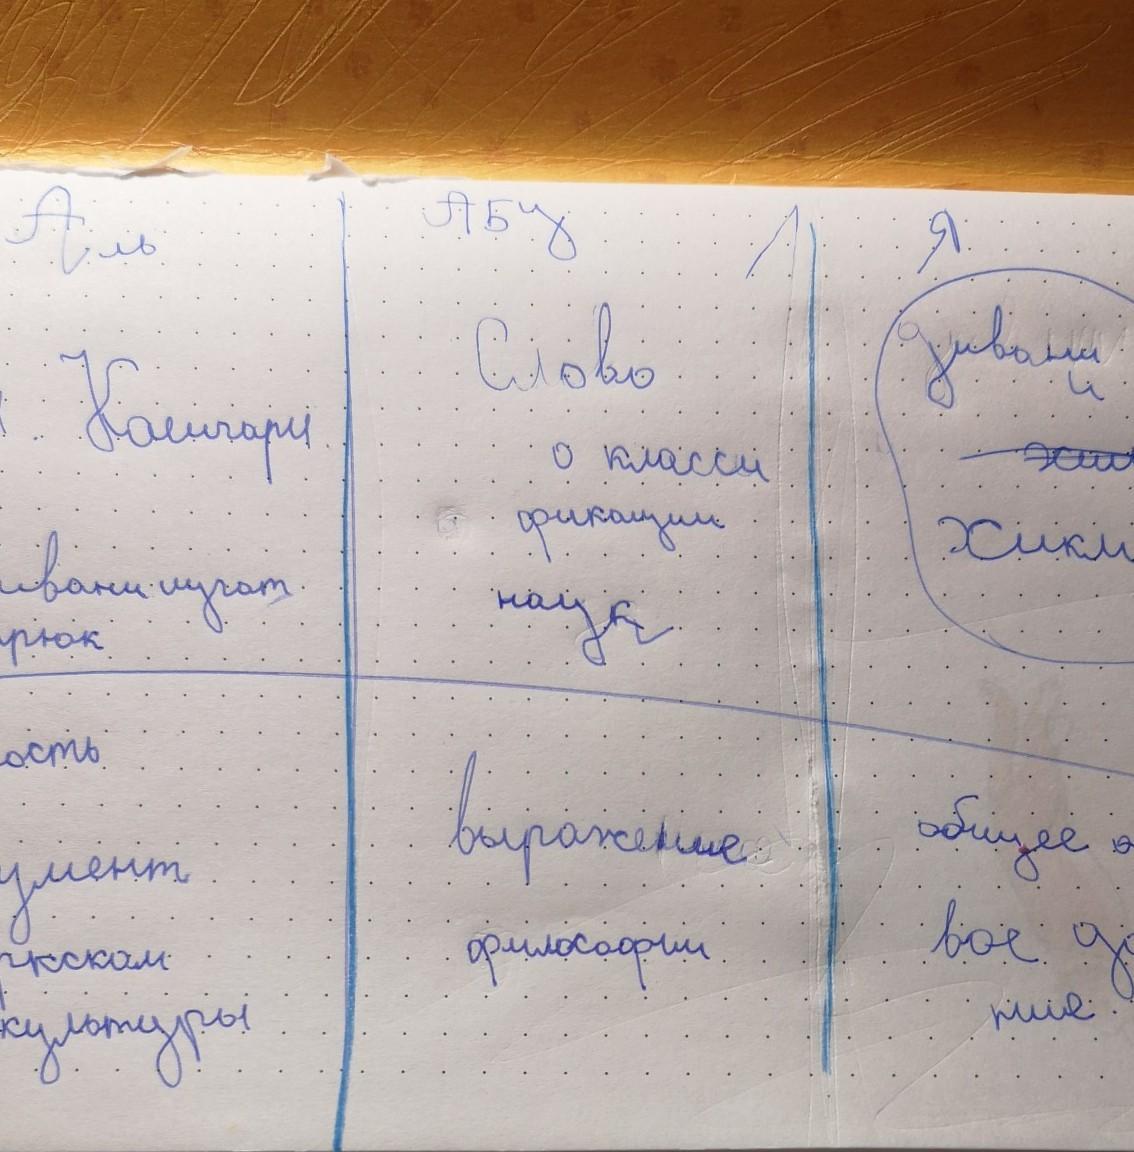 Аль
Кашгари
ивани лугат
рюк
ость
умент
ркскам
культуры
АБУ
Слово
о класси
фикации
наук
выражение
философии
Я
дивани
и
Хикм
общее
вое до
ние